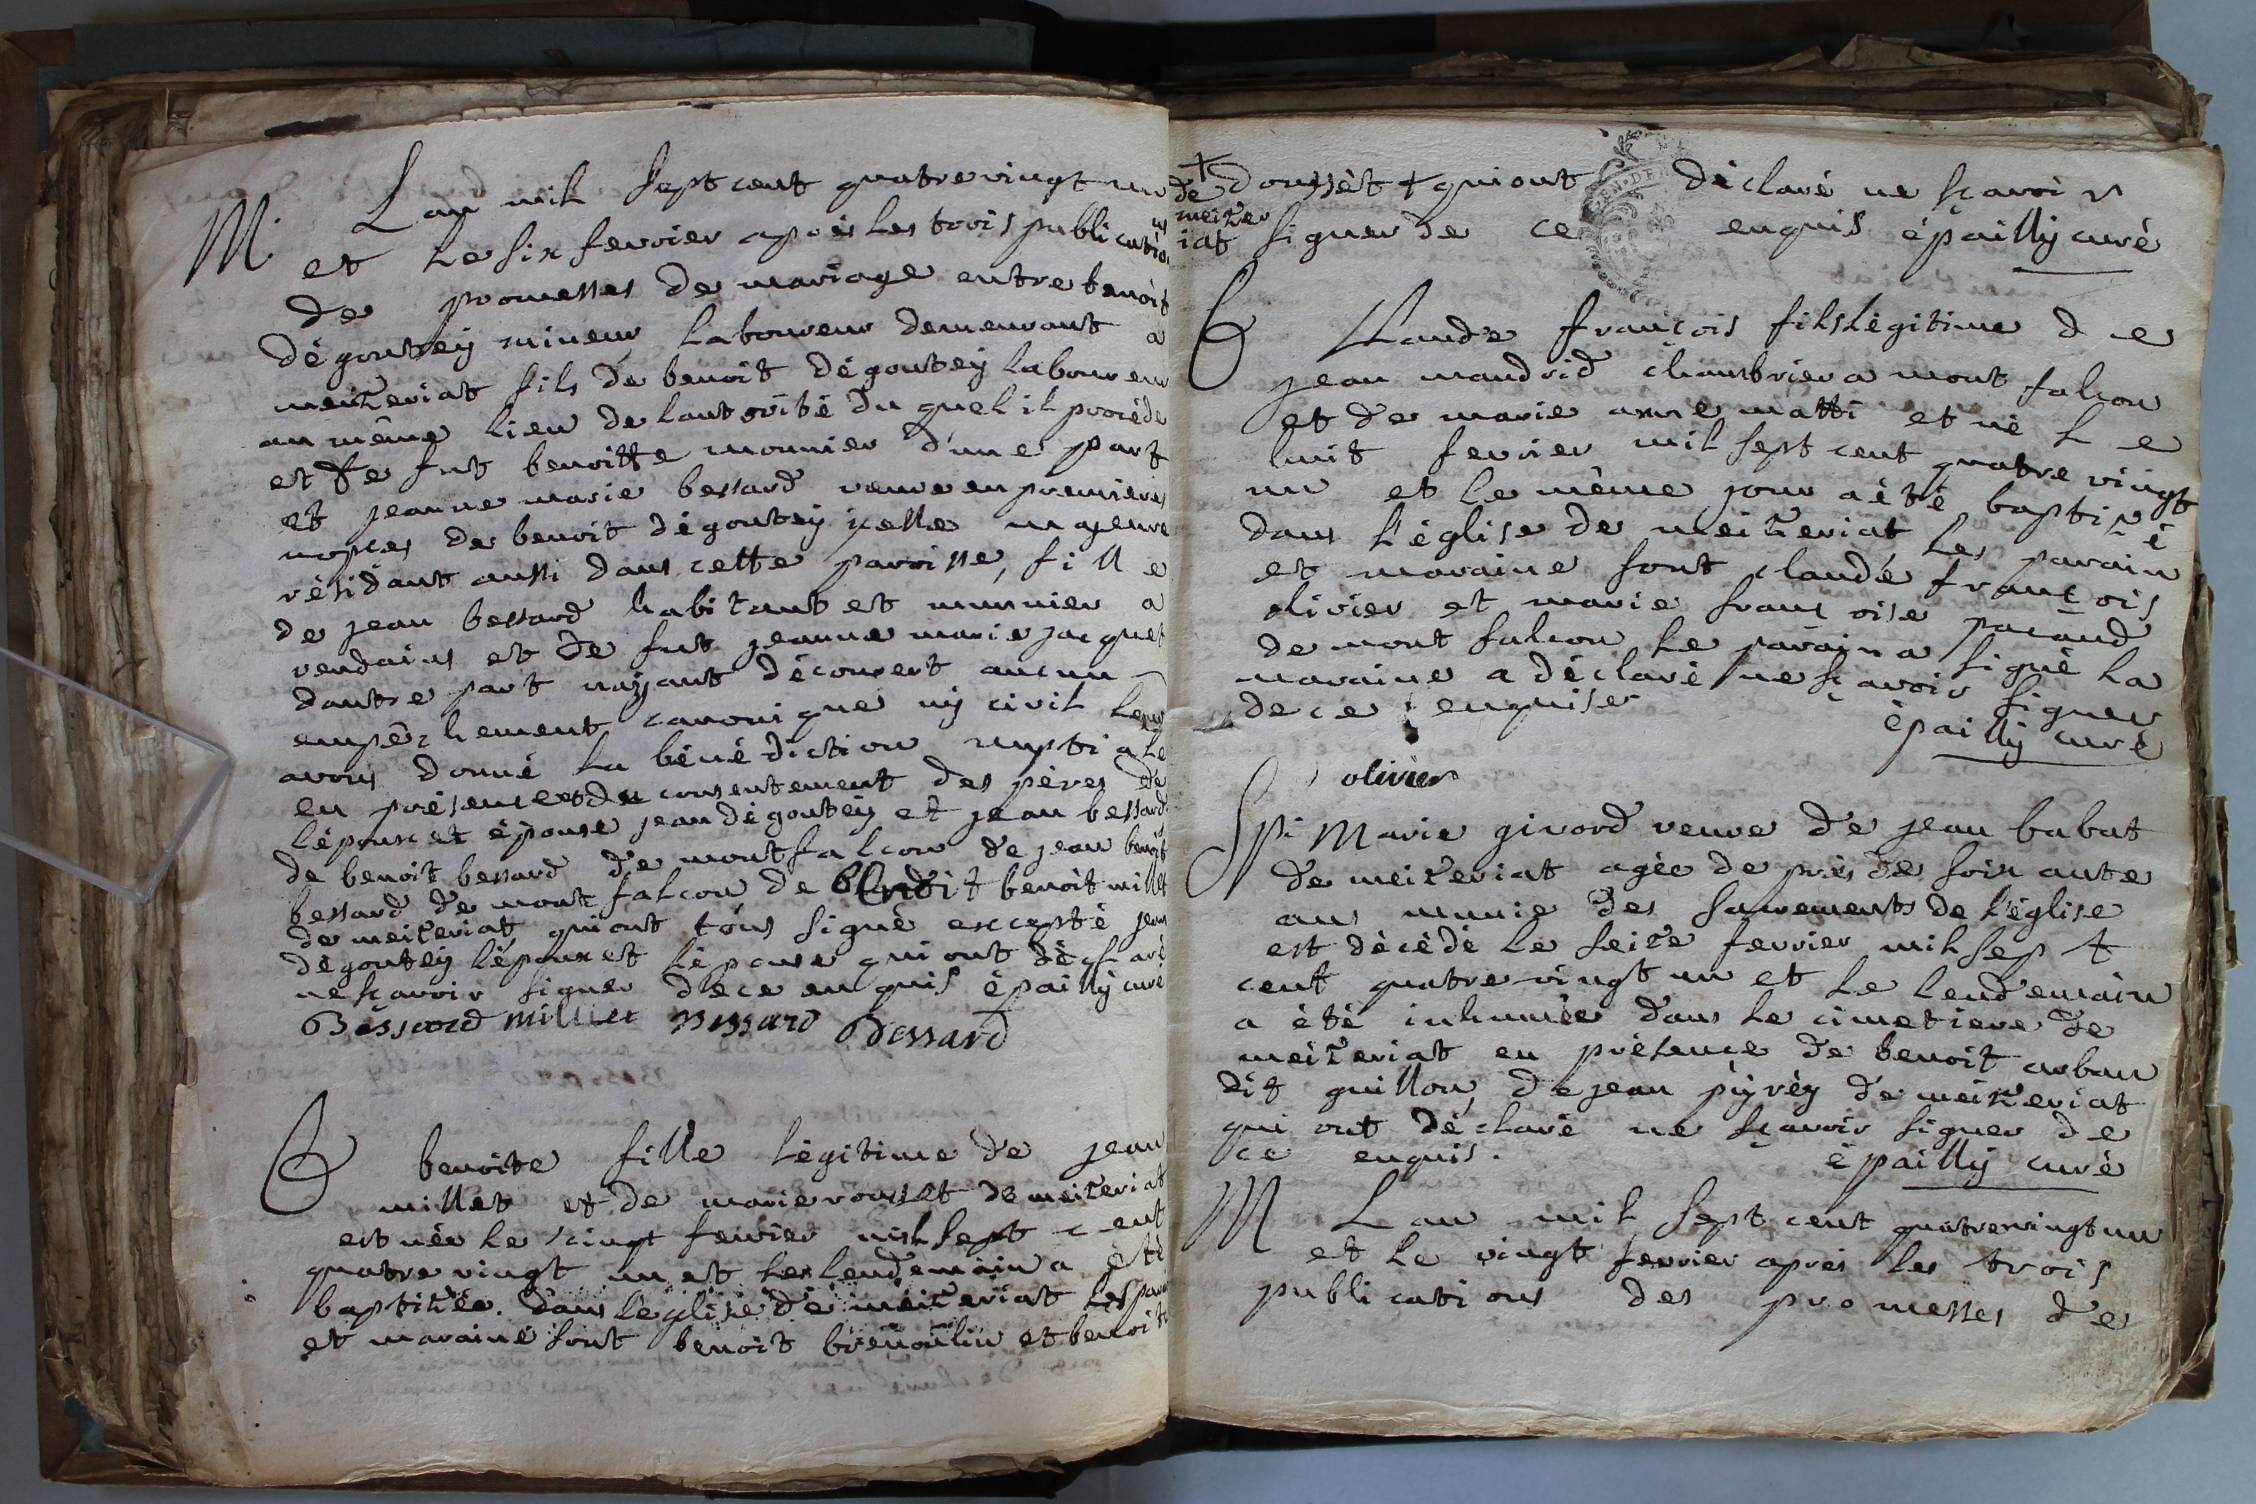 M. Lan mil sept cent quatre vingt un
et le six fevrier après les trois publications
de promesses de mariage entre benoit
dégoutey mineur laboureur demeurant a
meizeriat fils de benoit dégoutey laboureur
au même lieu de lautorité du quel il procède
et de fut benoitte monnier d'une part
et jeanne marie bessard veuve en premieres
nopces de benoit dégoutey icelle majeure
résidant aussi dans cette paroisse, fille
de jean bessard habitant et munnier a
vendains et de fut jeanne marie jacquet
dautre part nayant découvert aucun
empêchement canonique ny civil leur
avons donné la bénédiction nuptiale
en présence et du consentement des pères de
lépoux et épouse jean dégoutey et jean bessard
de benoit bessard de montfalcon de jean benoit
bessard de mont falcon de benoit millet
de meizeriat qui ont tous signé excepté jean
dégoutey lépoux et lépouse qui ont déclaré
ne sçavoir signer de ce enquis épailly curé
Bessard Milliet Bessard Bessard
B benoite fille légitime de jean
millet et de marie rousset de meizeriat
est née le vingt fevrier mil sept cent
quatre vingt un et le lendemain a été
baptizée dans léglise de meizeriat les parain
et maraine sont benoit brenoulin et benoite
+ de meizeriat
doussèt + qui ont déclaré ne sçavoir
signer de ce enquis épailly curé
B Claude françois fils légitime de
jean maudrid chambrier a mont falcon
et de marie anne matti est né le
huit fevrier mil sept cent quatre vingt
un et le même jour a été baptizé
dans l'église de meizeriat les parain
et maraine sont claude françois
olivier et marie françoise pacaud
de mont falcon le parain a signé la
maraine a déclaré ne sçavoir signer
de ce enquise épailly curé
olivier
Spi Marie girord veuve de jean babat
de meizeriat agée de près de soixante
ans munie des sacrements de l'église
est décèdé le seize fevrier mil sept
cent quatre vingt un et le lendemain
a été inhumée dans le cimetiere de
meizeriat en présence de benoit arban
dit guillon, de jean pyréy de meizeriat
qui ont déclaré ne sçavoir signer de
ce enquis. épailly curé
M Lan mil sept cent quatrevingt un
et le vingt fevrier après les trois
publications des promesses de